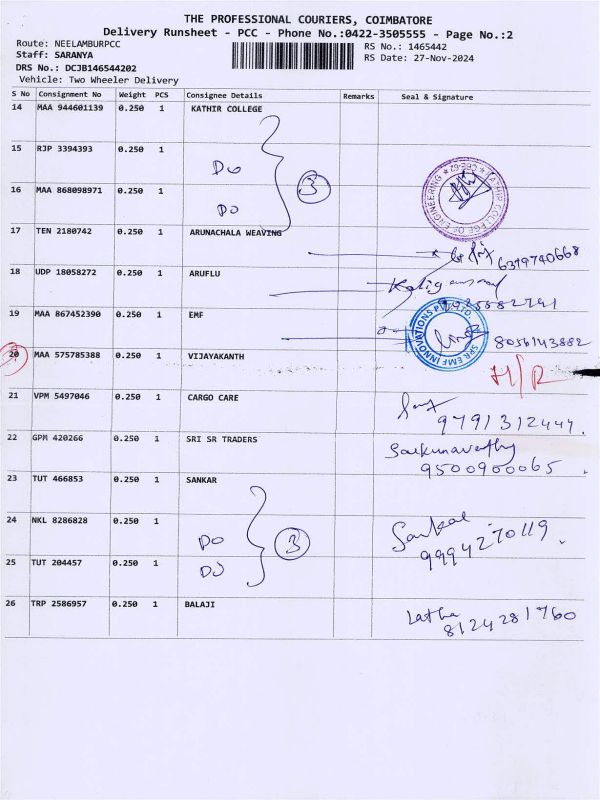 THE PROFESSIONAL COURIERS, COIMBATORE
Delivery Runsheet - PCC - Phone No.:0422-3505555 - Page No.:2
Route: NEELAMBURPCC
Staff: SARANYA
DRS No.: DCJB146544202
Vehicle: Two Wheeler Delivery
RS No.: 1465442
RS Date: 27-Nov-2024
S No Consignment No Weight PCS Consignee Details Remarks Seal & Signature
14 MAA 944601139 0.250 1 KATHIR COLLEGE
15 RJP 3394393 0.250 1
DO
3
KATHIR COLLEGE OF ENGINEERING
16 MAA 868098971 0.250 1
DO
17 TEN 2180742 0.250 1 ARUNACHALA WEAVING
6379740668
18 UDP 18058272 0.250 1 ARUFLU
19 MAA 867452390 0.250 1 EMF
SPR EMF INNOVATIONS PVT LTD
8056143882
20 MAA 575785388 0.250 1 VIJAYAKANTH
H/R
21 VPM 5497046 0.250 1 CARGO CARE
9791312447.
22 GPM 420266 0.250 1 SRI SR TRADERS
9500900065.
23 TUT 466853 0.250 1 SANKAR
24 NKL 8286828 0.250 1
DO
3
Sankar
9994270119.
25 TUT 204457 0.250 1
DO
26 TRP 2586957 0.250 1 BALAJI
Latha
8124281760